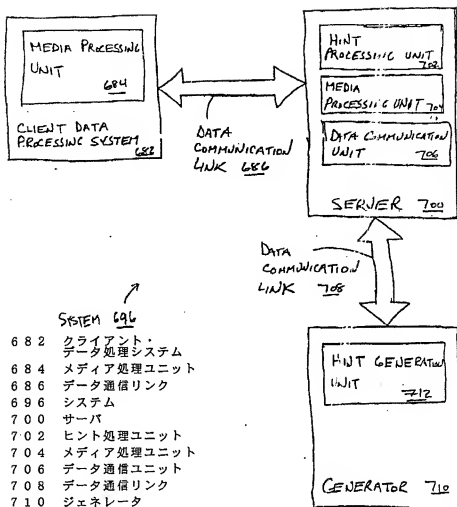 MEDIA PROCESSING
UNIT
684
CLIENT DATA
PROCESSING SYSTEM
682
DATA
COMMUNICATION
LINK 686
HINT
PROCESSING UNIT
702
MEDIA
PROCESSING UNIT 704
DATA COMMUNICATION
UNIT 706
SERVER 700
DATA
COMMUNICATION
LINK 708
HINT GENERATOR
UNIT
712
GENERATOR 710
SYSTEM 696
682 クライアント・
データ処理システム
684 メディア処理ユニット
686 データ通信リンク
696 システム
700 サーバ
702 ヒント処理ユニット
704 メディア処理ユニット
706 データ通信ユニット
708 データ通信リンク
710 ジェネレータ